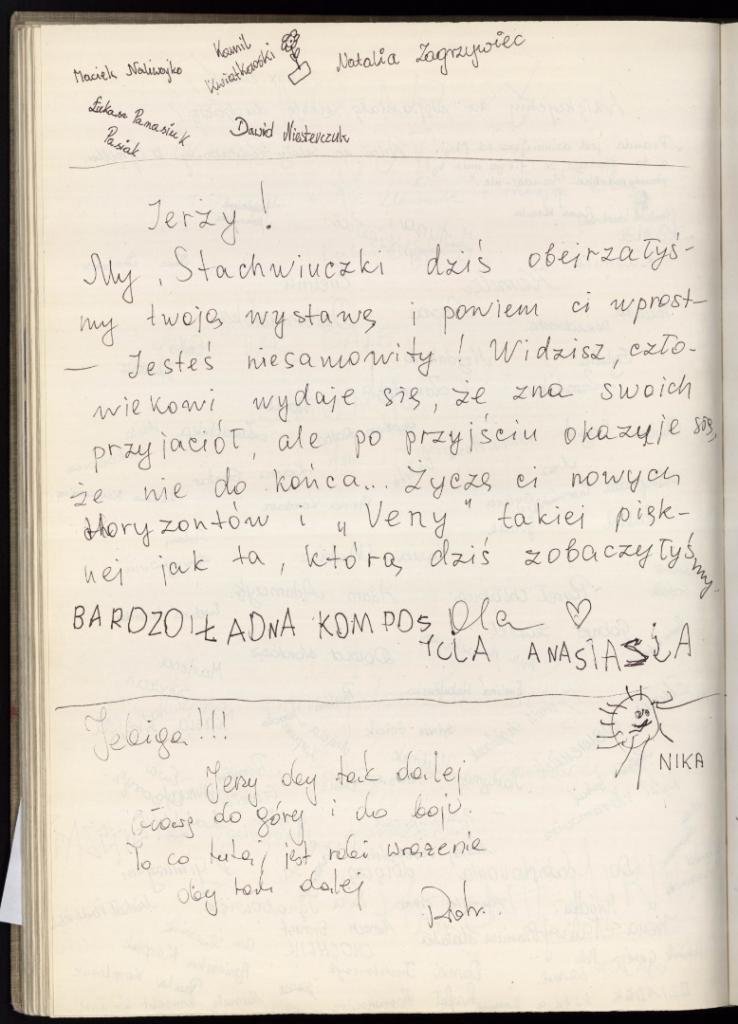 Maciek Naliwajko
Kamil
Kwiatkowski
Natalia Zagrzywiec
Łukasz Panasiuk
Pasiak
Dawid Niesterczuk
Jerzy!
My, Stachwiuczki dziś obejrzałyś-
my twoją wystawę i powiem ci wprost-
- Jesteś niesamowity! Widzisz, czło-
wiekowi wydaje się, że zna swoich
przyjaciół, ale po przyjściu okazuje się,
że nie do końca... Życzę ci nowych
Horyzontów i „Veny" takiej pięk-
nej jak ta, którą dziś zobaczyłyśmy.
BARDZO ŁADNA KOMPOS Ola ♡
YCIA ANASTASIA
NIKA
!!!
Jerzy oby tak dalej
Głowa do góry i do boju.
To co tutaj jest robi wrażenie
oby tak dalej
Piotr.